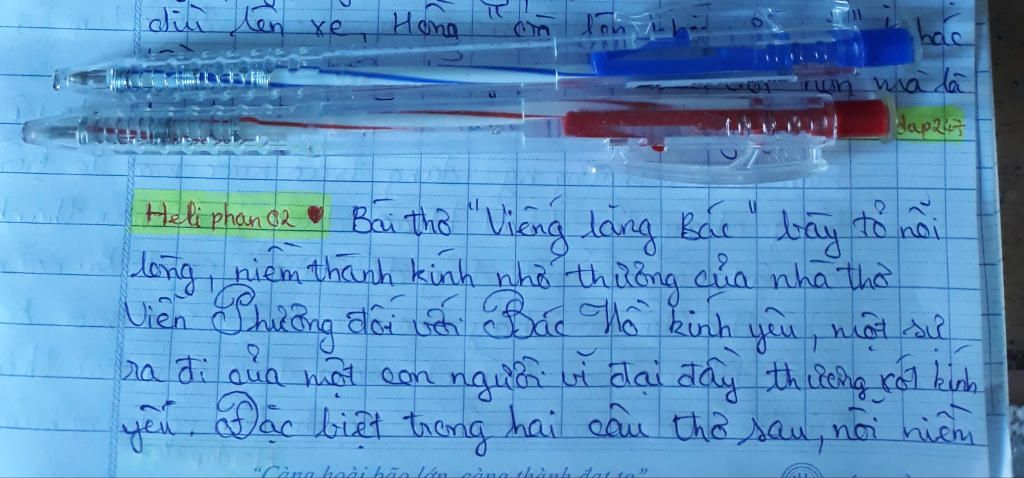 dìu lên xe, Hồng
bác
mà lã
dap247
Heliphan02 ♥ Bài thơ "Viếng lăng Bác" bày tỏ nỗi
lòng, niềm thành kính nhớ thương của nhà thơ
Viễn Phương đối với Bác Hồ kính yêu, một sự
ra đi của một con người vĩ đại đầy thương xót kính
yêu. Đặc biệt trong hai câu thơ sau, nỗi niềm
"Càng hoài bão lớn, càng thành đạt to"